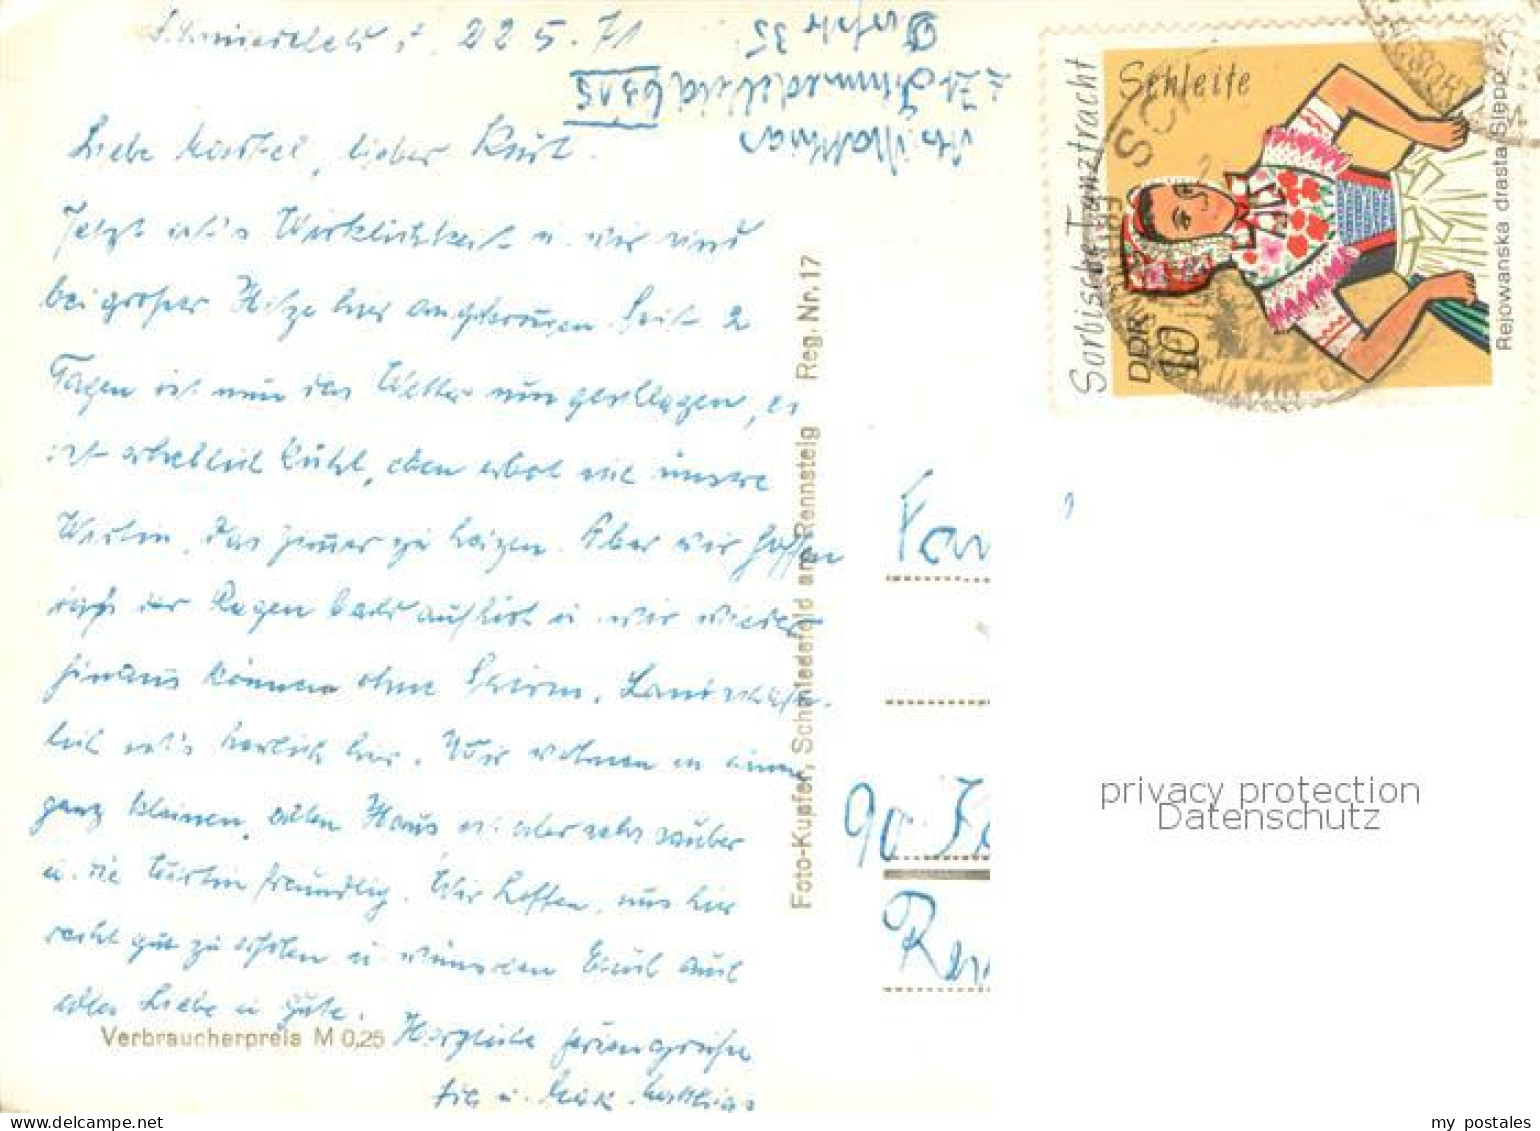 Schmiedefeld, 22 5. 71
Liebe Christel, lieber Kurt.
Jetzt ist's Wirklichkeit u. wir sind
bei großer Hitze hier angekommen. Seit 2
Tagen ist nun das Wetter umgeschlagen, es
ist erheblich kühl, eben erbot sich unsre
Wirtin, das Zimmer zu heizen. Aber wir hoffen
daß der Regen bald aufhört u. wir wieder
hinaus können ohne Schirm. Landschaft-
lich ist's herrlich hier. Wir wohnen in einem
ganz kleinen, alten Haus, es ist aber sehr sauber
u. die Wirtin freundlich. Wir hoffen, uns hier
recht gut zu erholen u. wünschen Euch auch
alles Liebe u. Gute. Herzliche Feriengrüße
u. Matthias
Verbraucherpreis M 0,25
Foto-Kupfer, Schmiedefeld am Rennsteig Reg. Nr. 17
Schmiedefeld 6315
35
Sorbische Tanztracht
Schleife
DDR 10
Rejowanska drasta/Slepo
Fam
90
privacy protection
Datenschutz
my postales